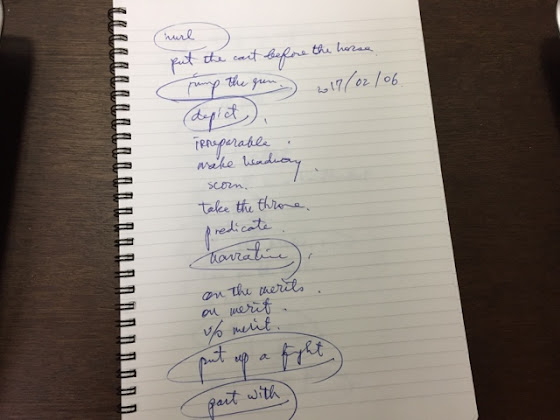 hurl
put the cart before the horse.
jump the gun. 2017/02/06
depict,
irreparable.
make headway.
scorn.
take the throne.
predicate.
narrative.
on the merits.
on merit.
v/o merit.
put up a fight
part with